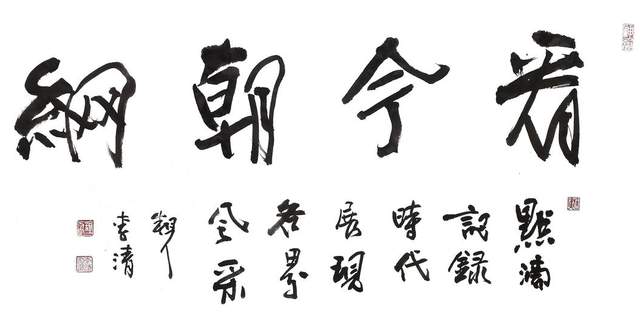 看今朝網
點滴
記錄
時代
展現
各界
風采
李清